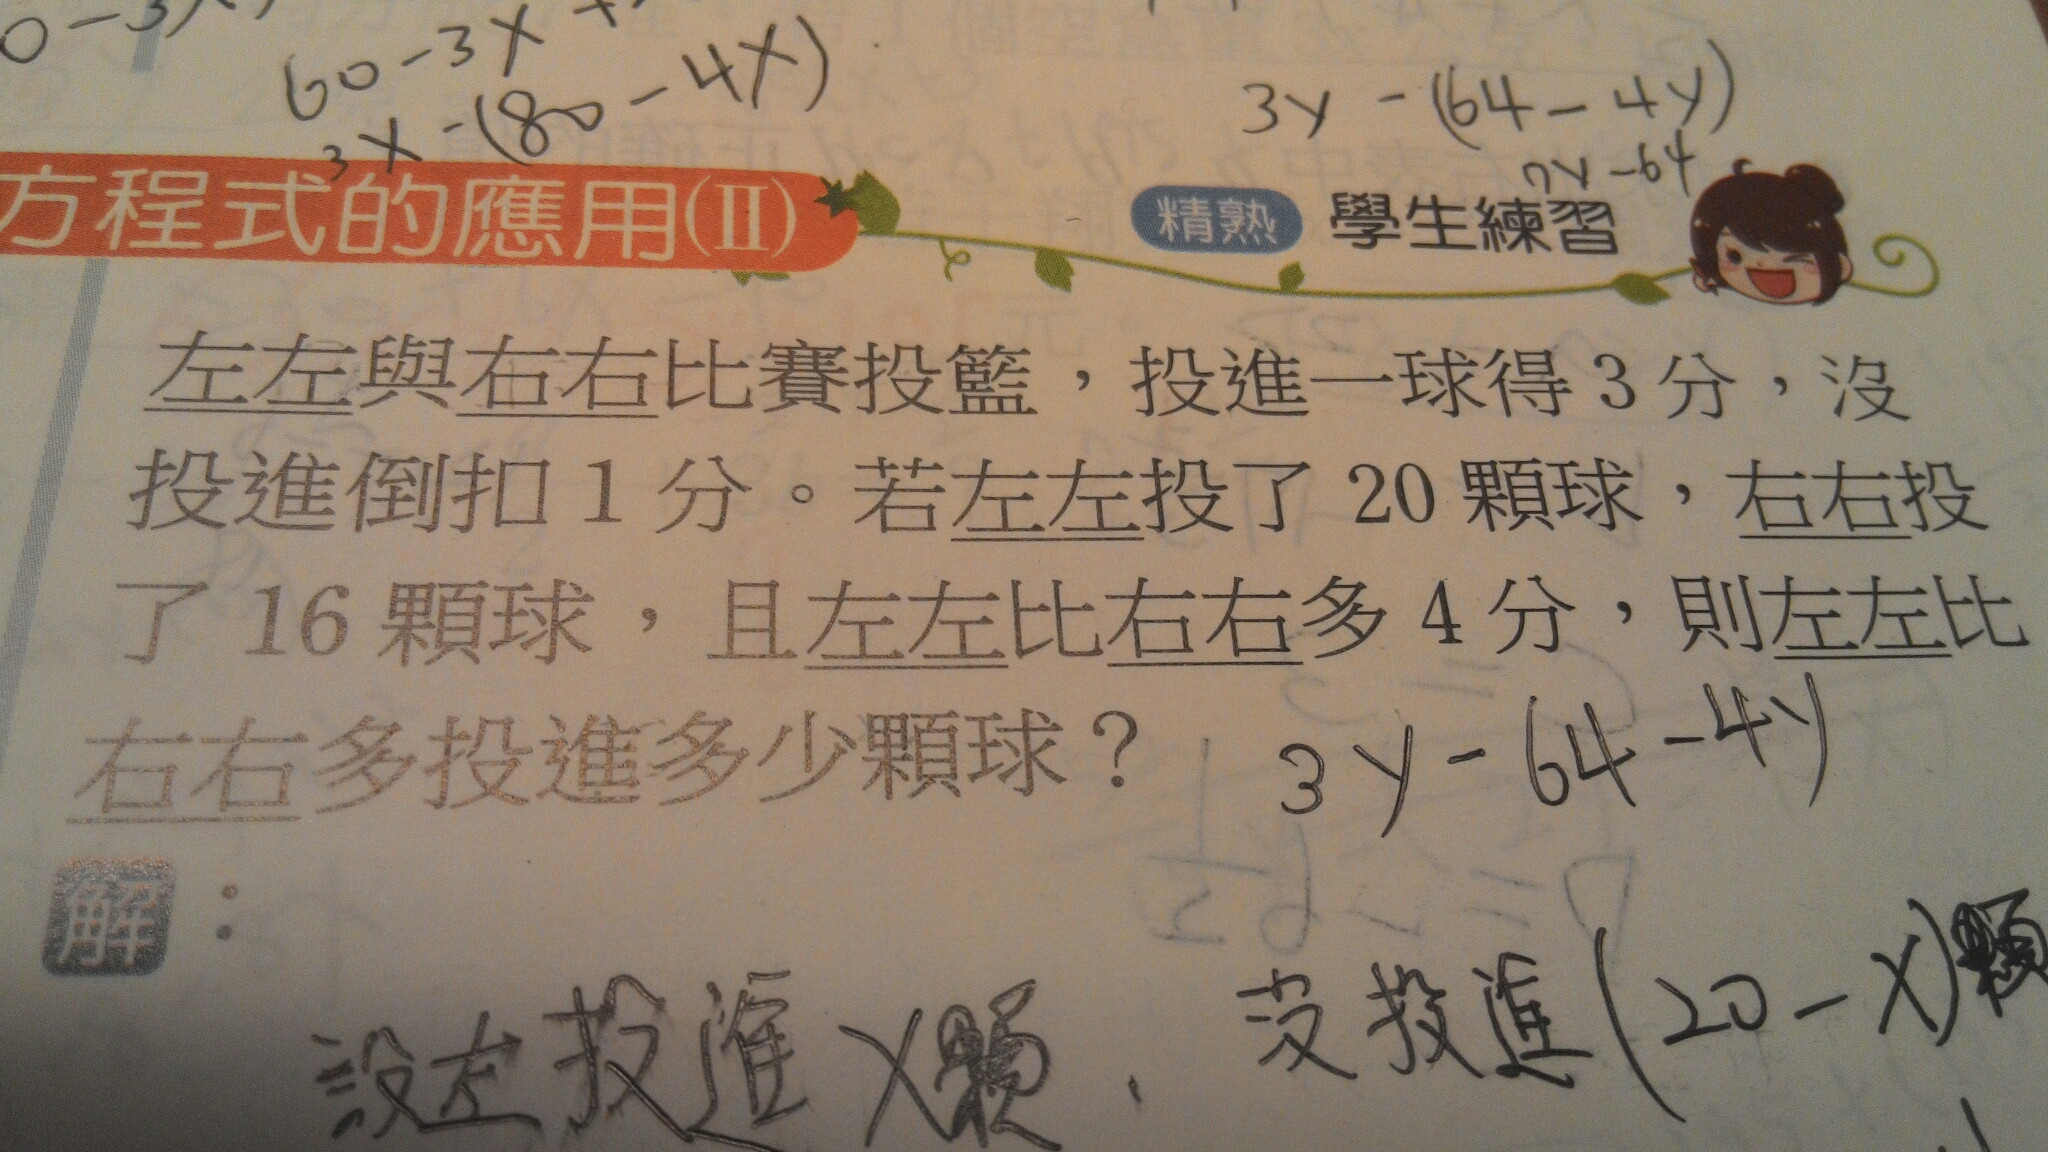 60-3X
3X-(80-4X)
3y-(64-4y)
方程式的應用(II)
精熟 學生練習
左左與右右比賽投籃，投進一球得3分，沒
投進倒扣1分。若左左投了20顆球，右右投
了16顆球，且左左比右右多4分，則左左比
右右多投進多少顆球？
3y-(64-4y)
解：
設左投進X顆，沒投進(20-X)顆